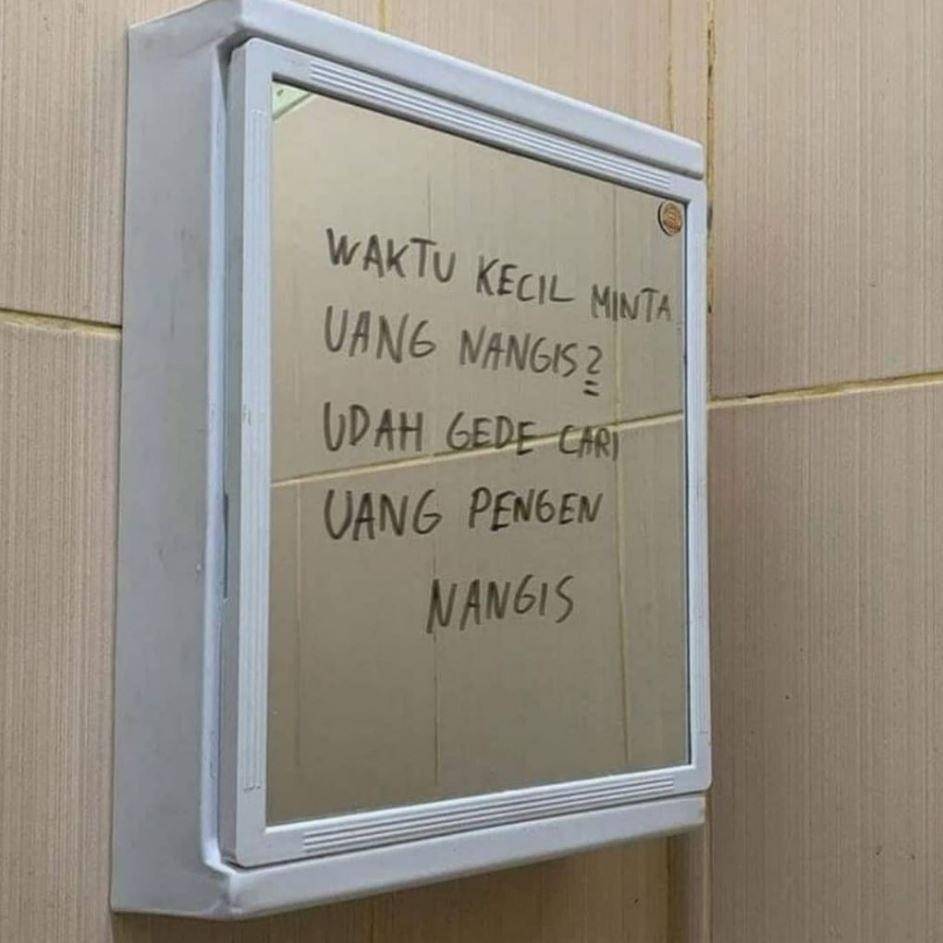 WAKTU KECIL MINTA
UANG NANGIS2
UDAH GEDE CARI
UANG PENGEN
NANGIS